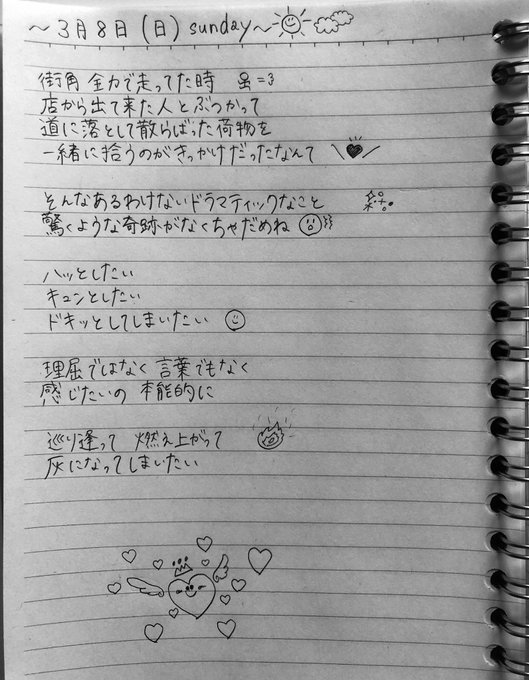 ～3月8日(日) sunday～
街角 全力で走ってた時
店から出て来た人とぶつかって
道に落として散らばった荷物を
一緒に拾うのがきっかけだったなんて
そんなあるわけないドラマティックなこと
驚くような奇跡がなくちゃだめね
ハッとしたい
キュンとしたい
ドキッとしてしまいたい
理屈ではなく 言葉でもなく
感じたいの 本能的に
巡り逢って 燃え上がって
灰になってしまいたい